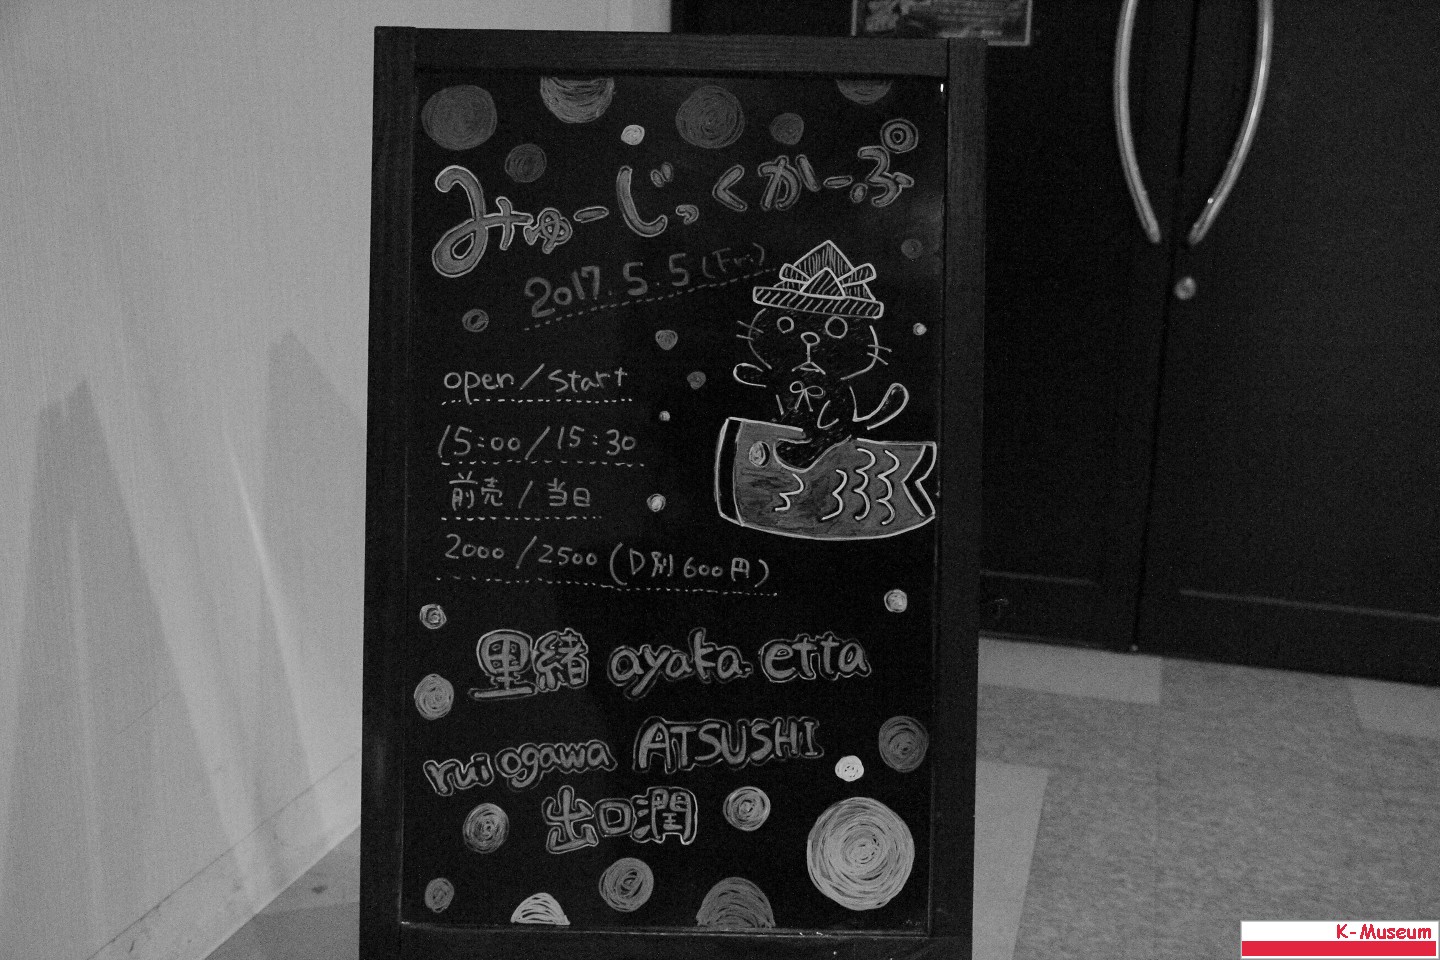 みゅーじっくかーぷ
2017.5.5(Fri.)
open/start
15:00/15:30
前売/当日
2000/2500(D別600円)
里緒 ayaka. etta
rui ogawa ATSUSHI
出口潤
K-Museum